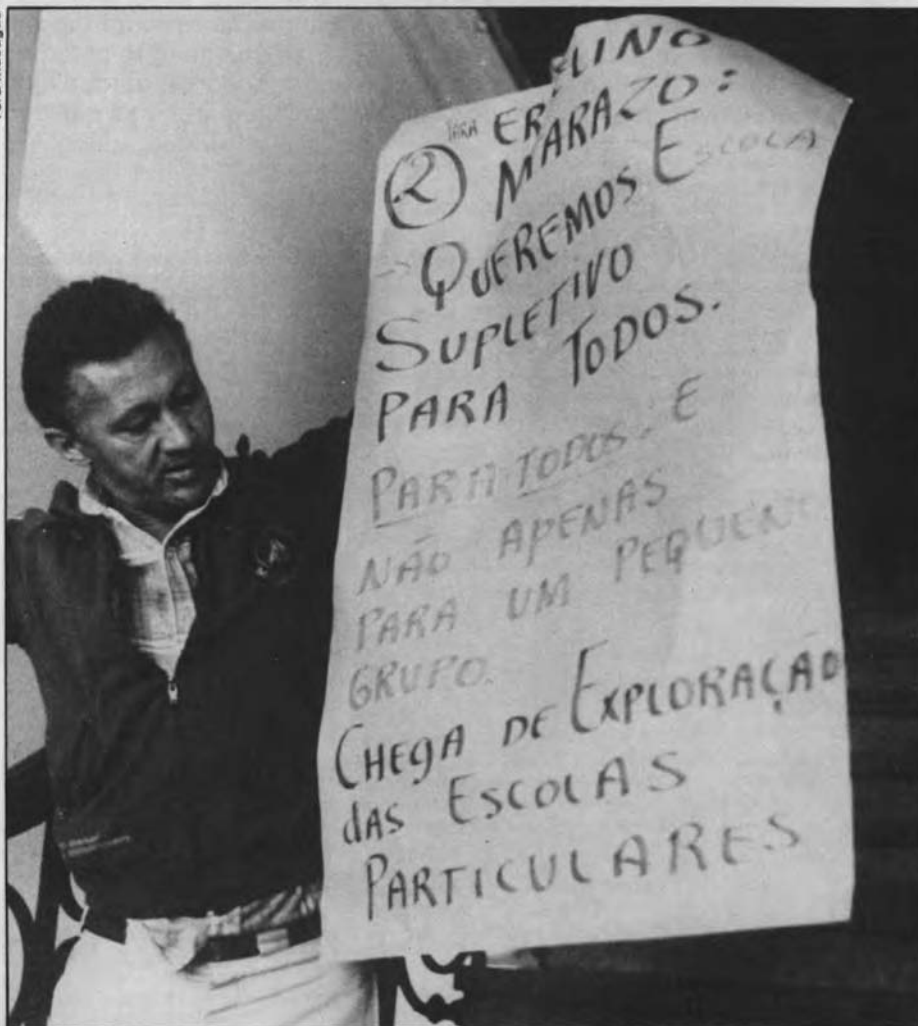 PARA ER LINO
② MARAZO:
- QUEREMOS ESCOLA
SUPLETIVO
PARA TODOS.
PARA TODOS. E
NÃO APENAS
PARA UM PEQUENO
GRUPO.
CHEGA DE EXPLORAÇÃO
DAS ESCOLAS
PARTICULARES